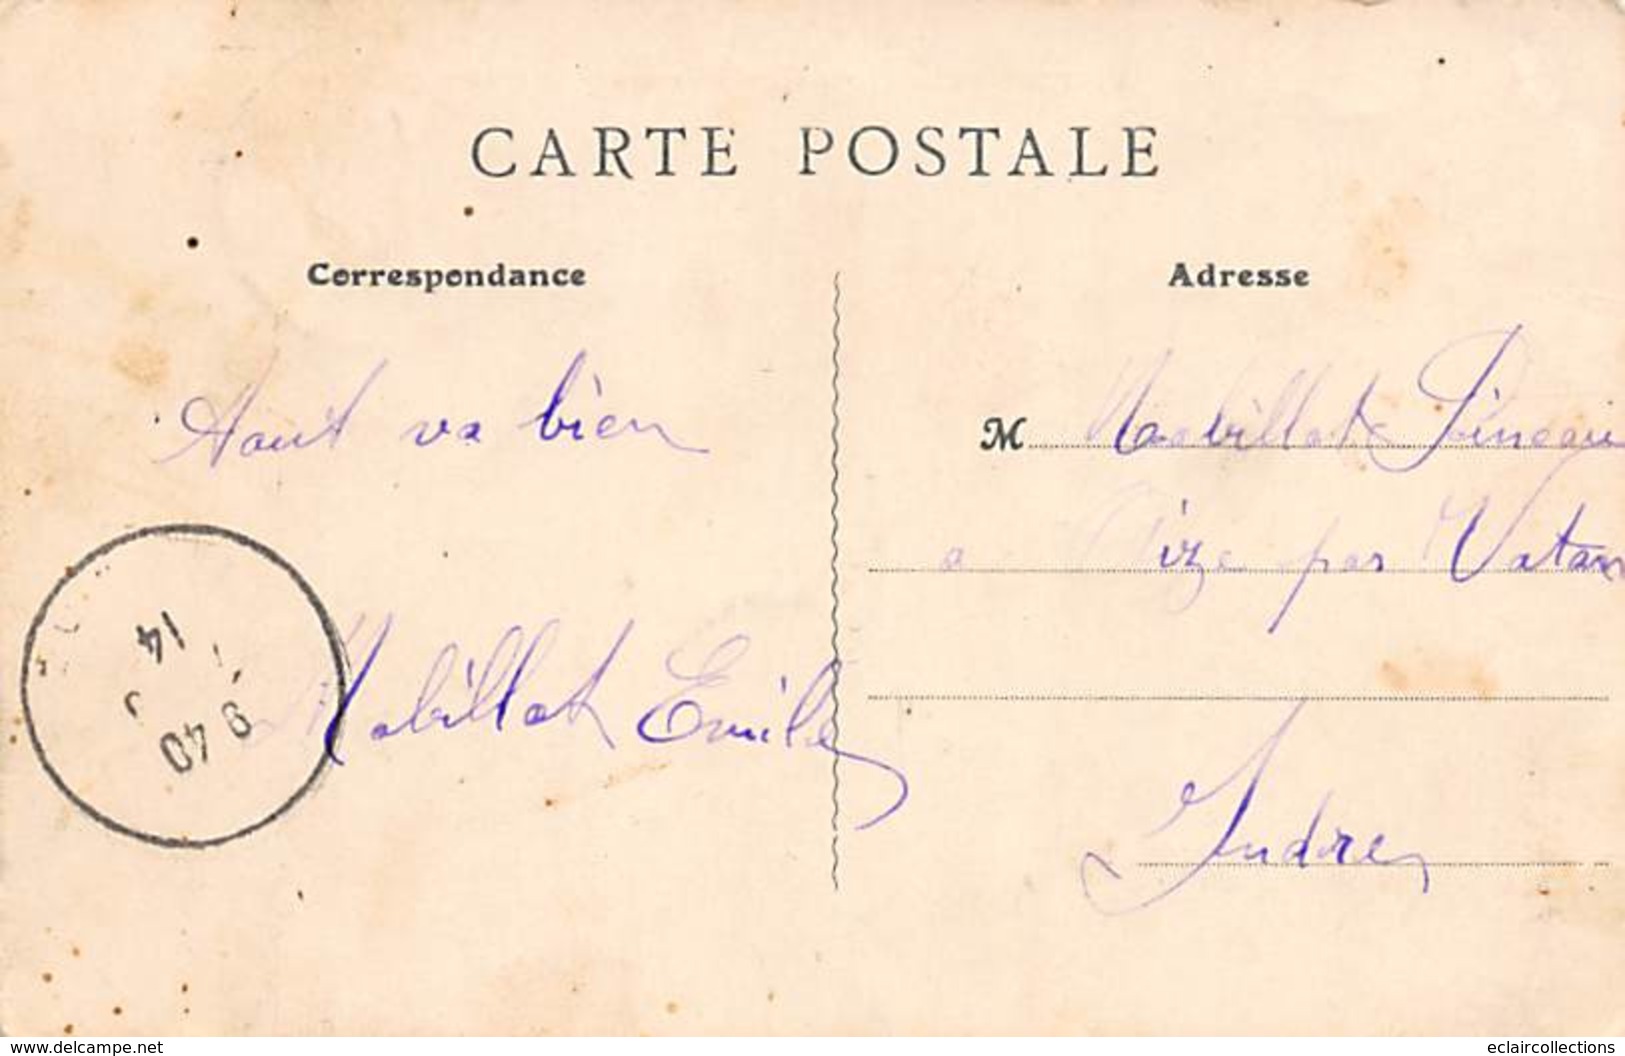 CARTE POSTALE
Correspondance
Tout va bien
Mabillat Emile
14
9 40
Adresse
M Mabillat
a Gize par Vatan
Indre
www.delcampe.net
eclaircollections